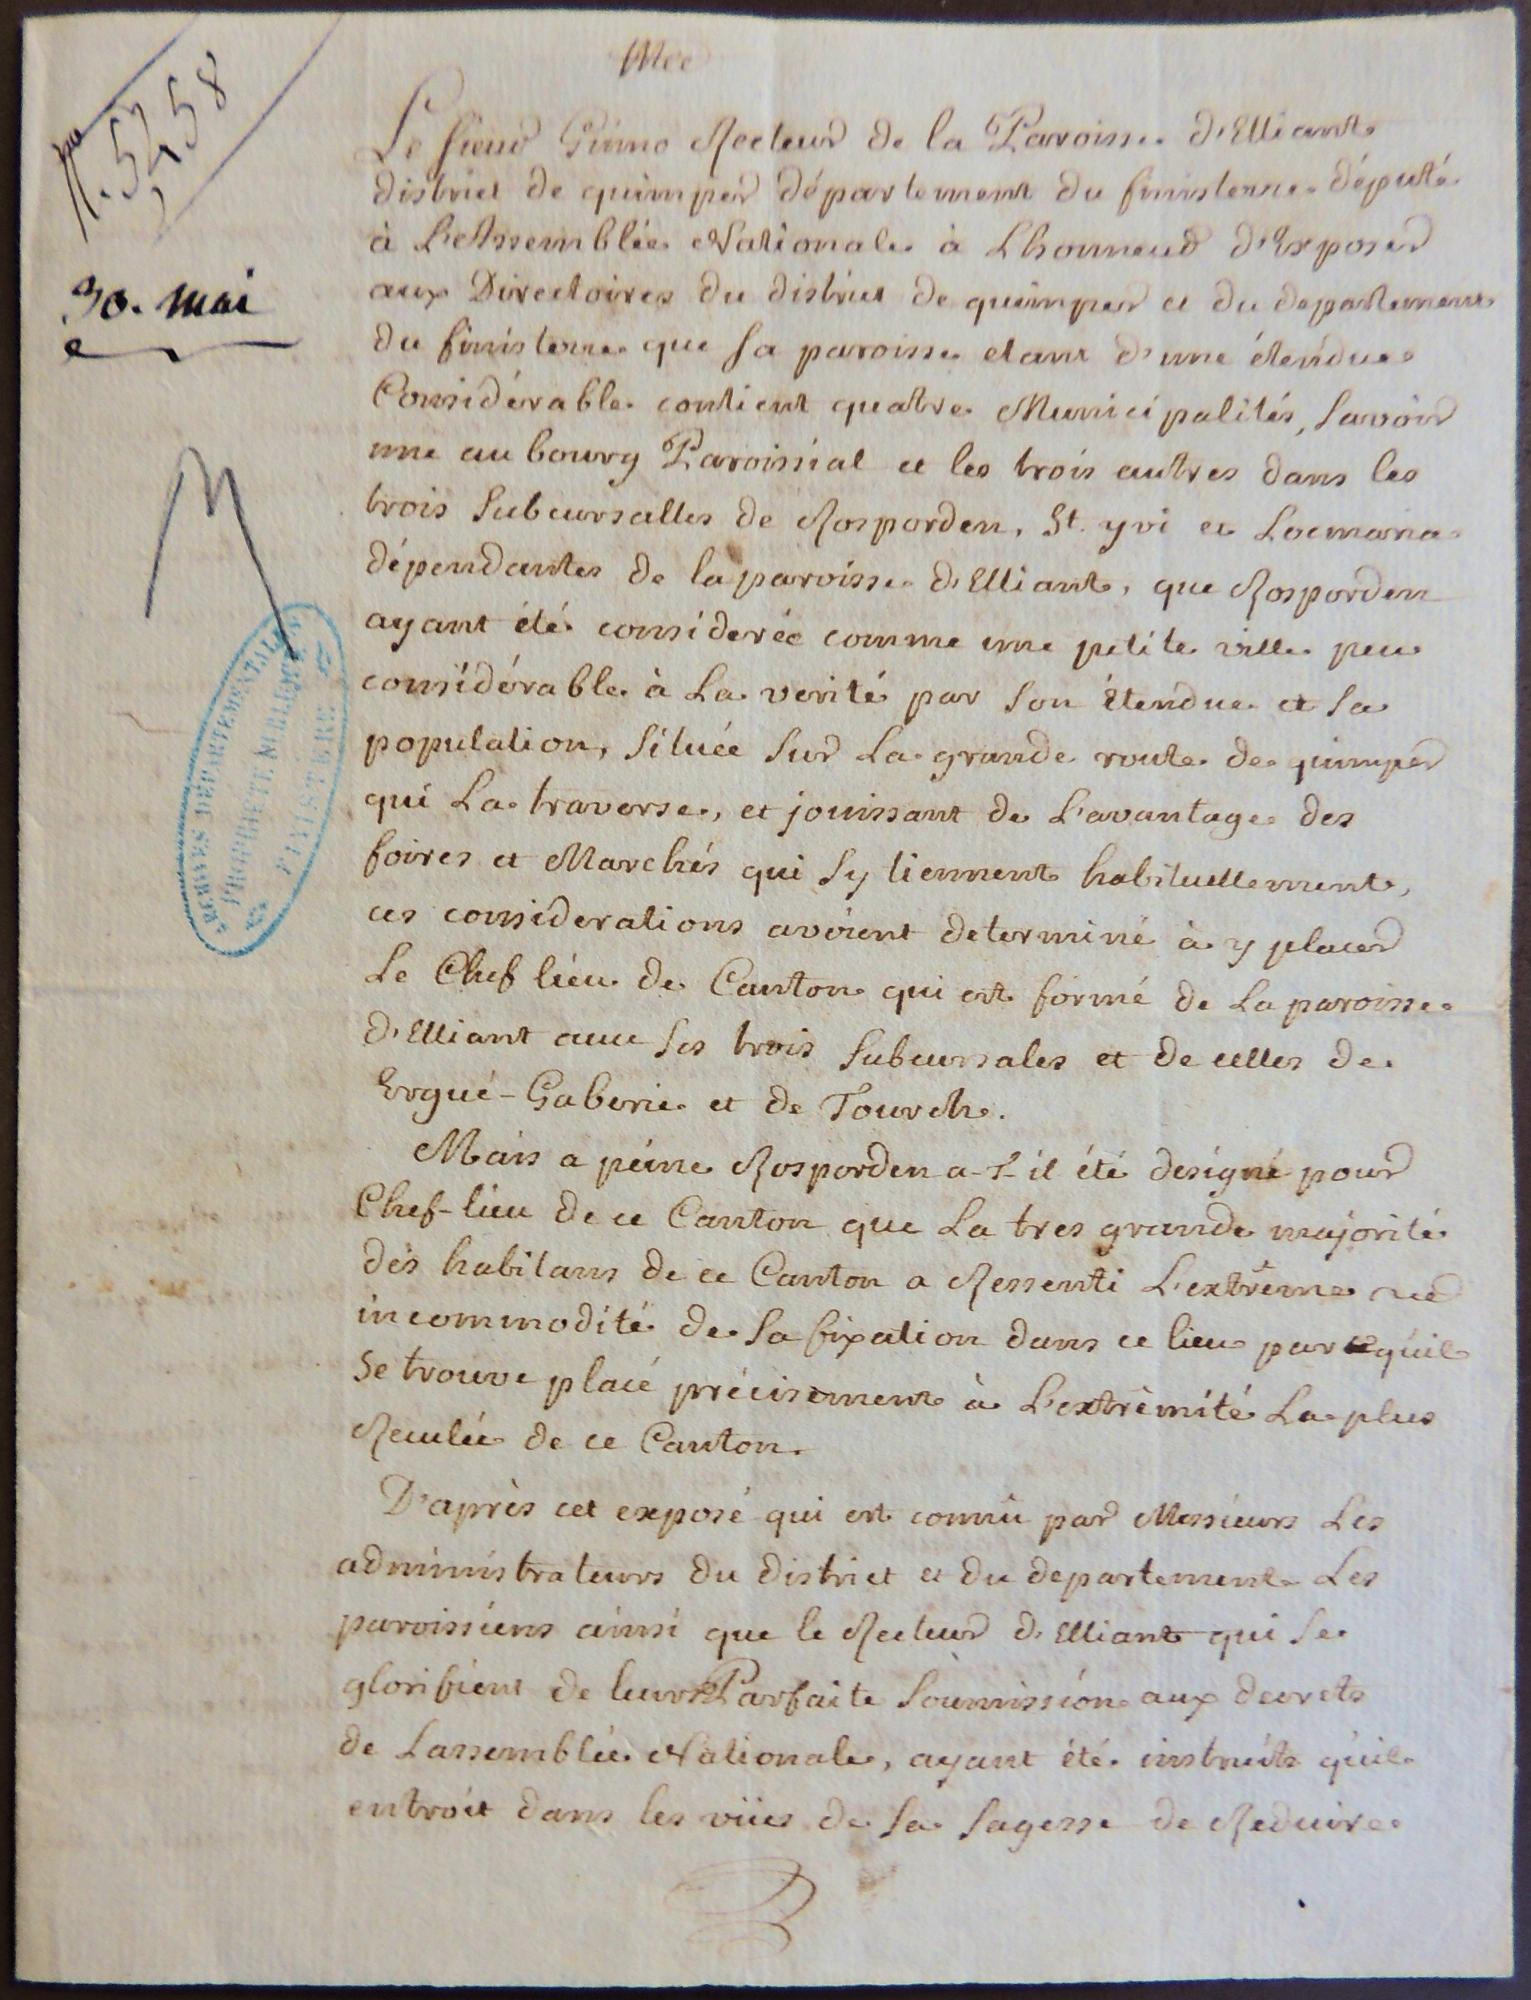 N.° 5258
30. mai
Le sieur Guino Recteur de la Paroisse d'Elliant
district de quimper département du finisterre député
à L'Assemblée Nationale à Lhonneur d'Exposer
aux Directoires du district de quimper et du departement
du finisterre que sa paroisse etant d'une étendue
Considérable contient quatre Municipalités, savoir
une au bourg Paroissial et les trois autres dans les
trois Subcursalles de Rosporden, St. yvi et Locmaria
dépendantes de la paroisse d'Elliant, que Rosporden
ayant été considerée comme une petite ville peu
considérable à La verité par son Etendue et sa
population, située sur La grande route de quimper
qui La traverse, et jouissant de L'avantage des
foires et Marchés qui sy tiennent habituellement,
ces considerations avoient determiné à y placer
Le Chef lieu de Canton qui est formé de La paroisse
d'Elliant avec ses trois Subcursales et de celles de
Ergué-Gaberic et de Tourch.
Mais a peine Rosporden a-t-il été designé pour
Chef-lieu de ce Canton que La tres grande majorité
des habitans de ce Canton a Ressenti L'extrême
incommodité de sa fixation dans ce lieu parcequil
se trouve placé précisement à L'extrêmité La plus
Reculée de ce Canton.
D'après cet exposé qui est connu par Messieurs Les
administrateurs du district et du departement Les
paroissiens ainsi que le Recteur d'Elliant qui se
glorifient de leur Parfaite soumission aux decrets
de Lassemblée Nationale, ayant été instruits quil
entroit dans les vües de sa sagesse de Reduire
ARCHIVES DÉPARTEMENTALES
PROPRIÉTÉ PUBLIQUE
FINISTÈRE